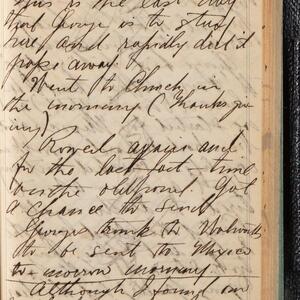 This is the last day
that George is to stay
here, and rapidly did it
pass away.
Went to Church in
the morning (Thanksgiv
ing)
Rowed again and
for the last foot-time
on the old pond. Got
a chance to send
George's trunk to Walworth
to be sent to Mexico
to-morrow morning.
Although I found on